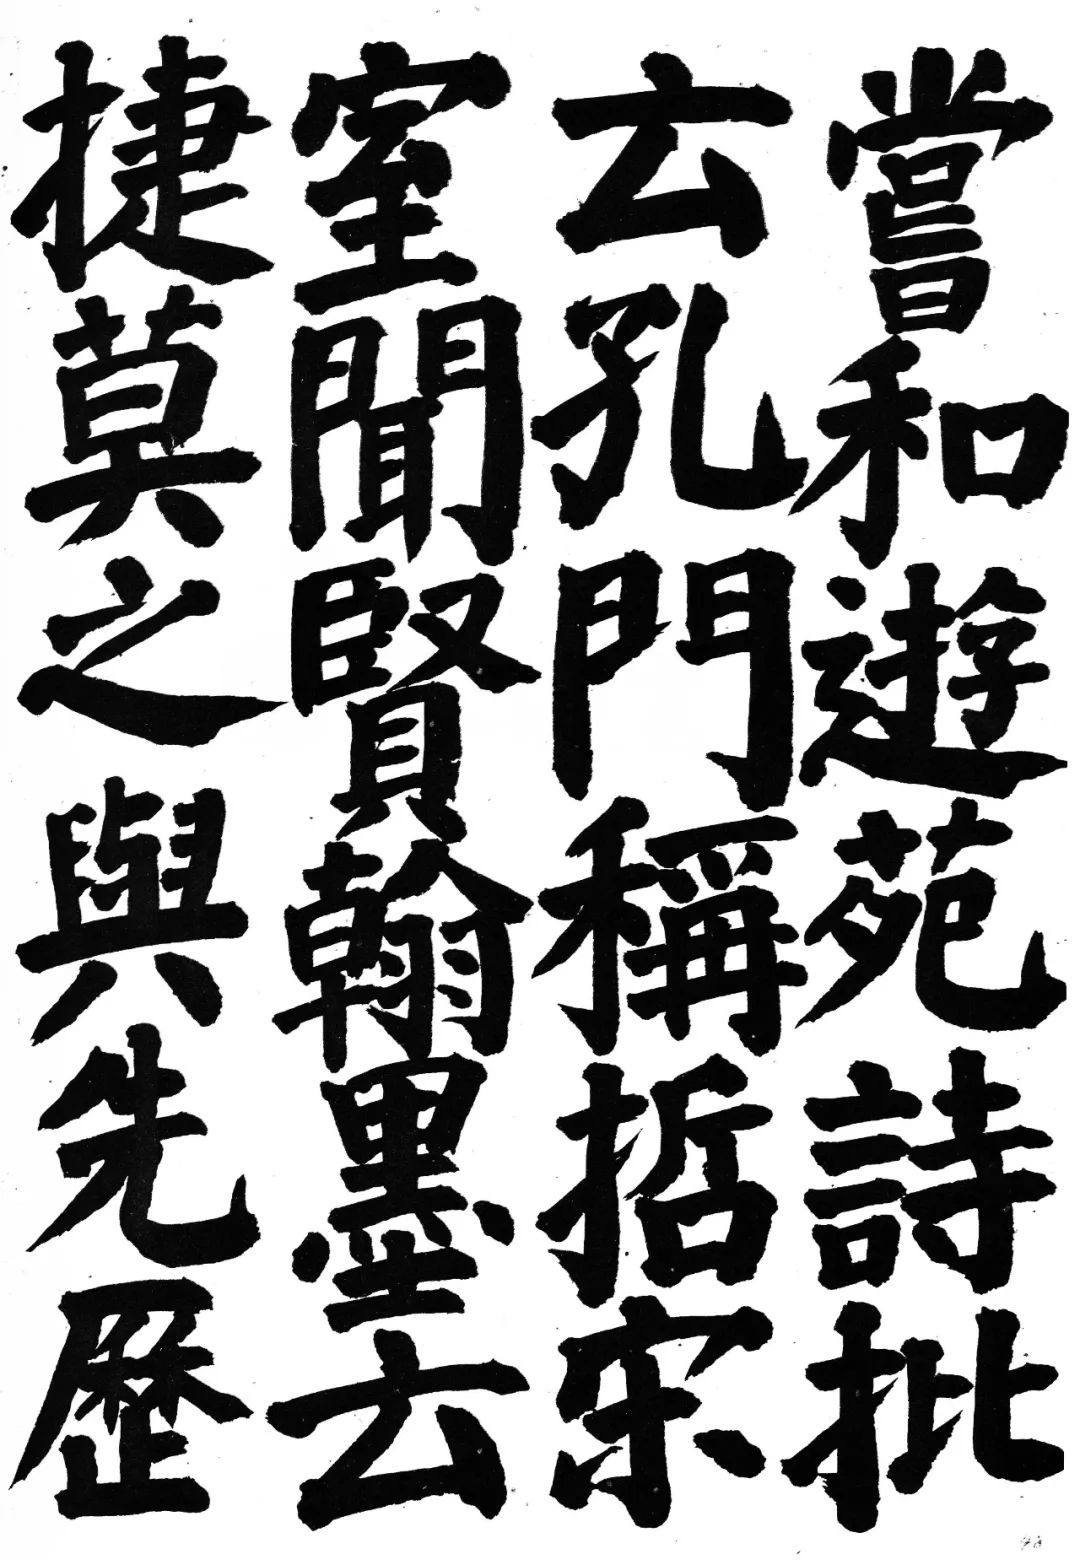 嘗和遊苑詩批
云孔門稱哲宋
室聞賢翰墨云
捷莫之與先歷